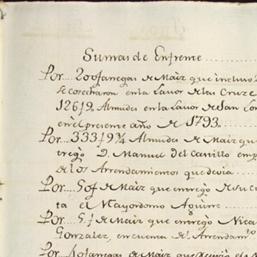 Sumas de Enfrente
Por 200 fanegas de Maiz que incluso
se cosecharon en la Lavor de las Cruze
126 19 Almudes en la Lavor de San Lor
en el presente año de 1793.
Por 333 f 9 ¾ Almudes de Maiz que
trego D. Manuel del Castillo emp
de los Arrendamientos que devia
Por 50 f de Maiz que entrego de su cu
ta el Mayordomo Aguirre
Por 5 f de Maiz que entrego Nica
Gonzalez, en cuenta de Arrendam
Por fanegas de Maiz que